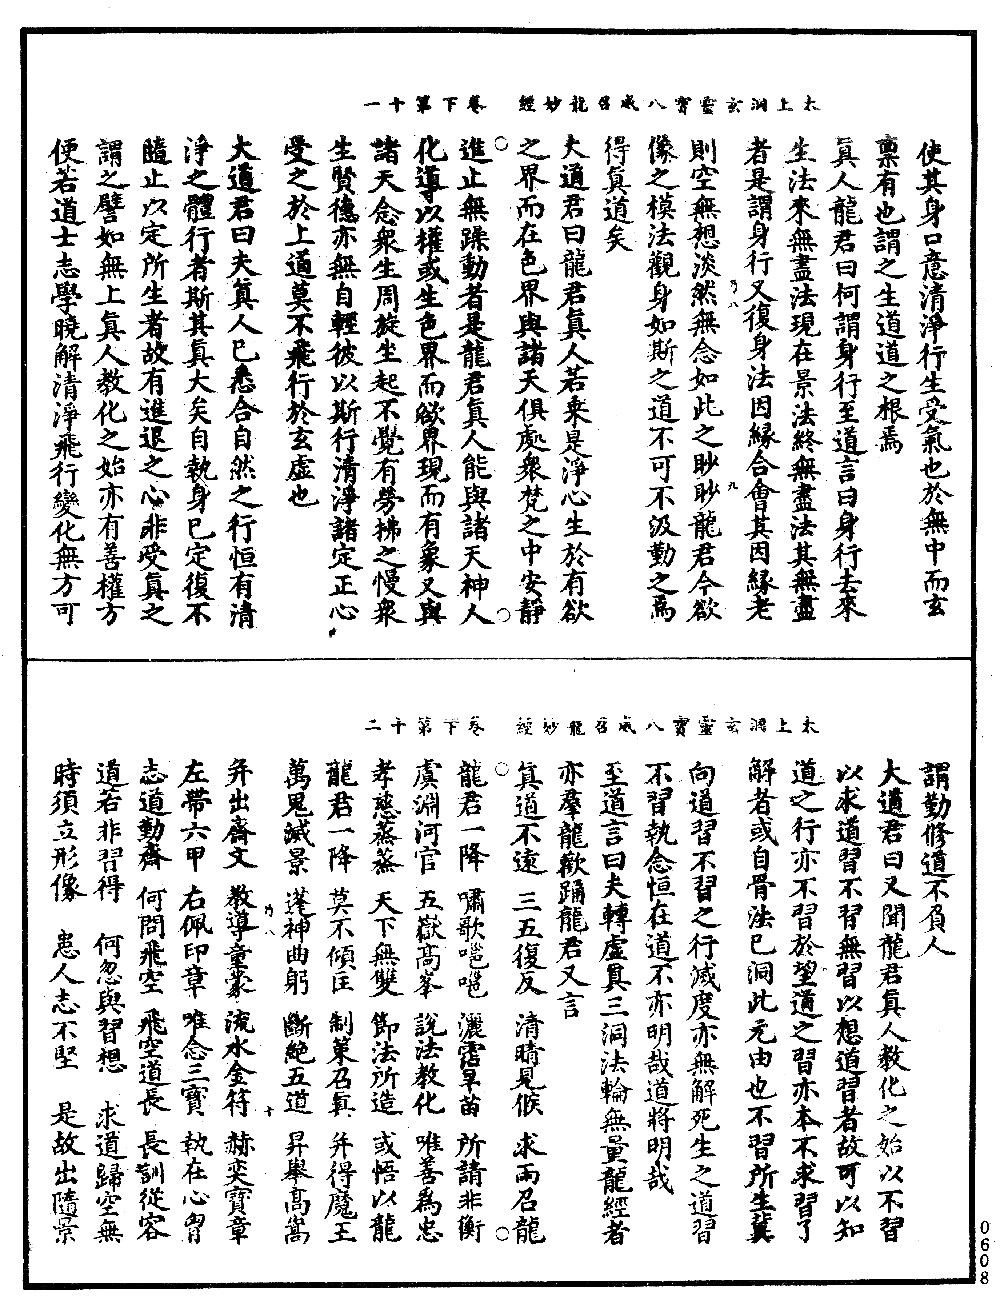 太上洞玄靈寶八威召龍妙經　卷下第十一
使其身口意清淨行生受氣也於無中而玄
稟有也謂之生道道之根焉
真人龍君曰何謂身行至道言曰身行去來
生法來無盡法現在景法終無盡法其無盡
者是謂身行又復身法因緣合會其因緣老
則空無想淡然無念如此之眇眇龍君今欲
像之模法觀身如斯之道不可不汲勤之焉
得真道矣
大道君曰龍君真人若乘是淨心生於有欲
之界而在色界與諸天俱處衆梵之中安靜
進止無躁動者是龍君真人能與諸天神人
化導以權或生色界而欲界現而有象又與
諸天念衆生周旋生起不覺有勞拂之慢衆
生賢德亦無自輕彼以斯行清淨諸定正心
受之於上道莫不飛行於玄虛也
大道君曰夫真人已悉合自然之行恒有清
淨之體行者斯其真大矣自執身已定復不
隨止以定所生者故有進退之心非受真之
謂之譬如無上真人教化之始亦有善權方
便若道士志學曉解清淨飛行變化無方可
太上洞玄靈寶八威召龍妙經　卷下第十二
謂勤修道不負人
大道君曰又聞龍君真人教化之始以不習
以求道習不習無習以想道習者故可以知
道之行亦不習於望道之習亦本不求習了
解者或自骨法已洞此无由也不習所生冀
向道習不習之行滅度亦無解死生之道習
不習執念恒在道不亦明哉道將明哉
至道言曰夫轉虛真三洞法輪無量龍經者
亦羣龍歡踊龍君又言
真道不遠　三五復反　清晴見候　求雨召龍
龍君一降　嘯歌嗈嗈　灑霑旱苗　所請非衡
虞淵河官　五嶽髙峯　說法教化　唯善為忠
孝慈蒸蒸　天下無雙　節法所造　或悟以龍
龍君一降　莫不傾匡　制策召真　并得魔王
萬鬼滅景　蓬神曲躬　斷絕五道　昇舉髙嵩
并出齋文　教導童蒙　流水金符　赫奕寶章
左帶六甲　右佩印章　唯念三寶　執在心胷
志道勤齋　何問飛空　飛空道長　長訓從容
道若非習得　何忽與習想　求道歸空無
時須立形像　患人志不堅　是故出隨景
乃八
九
乃八
十
0608